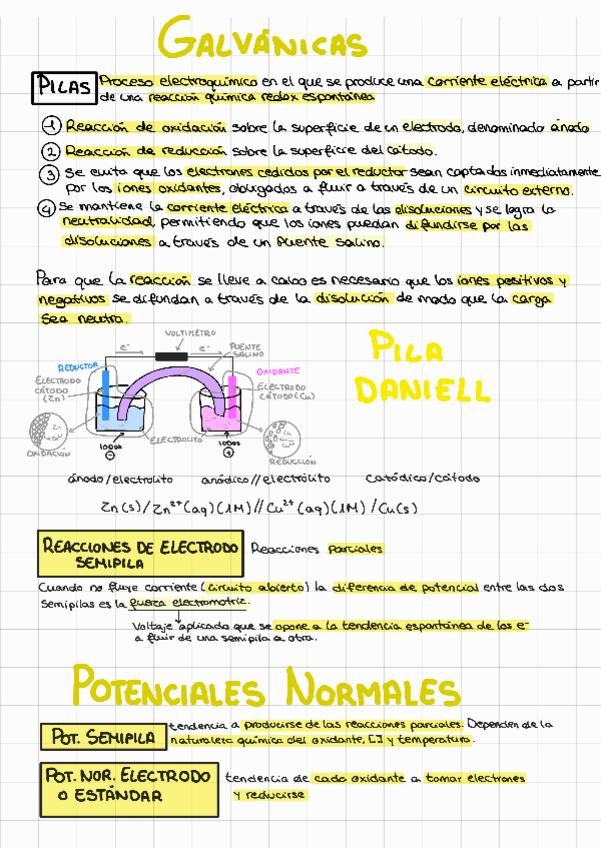 GALVÁNICAS
PILAS Proceso electroquímico en el que se produce una corriente eléctrica a partir
de una reacción química redox espontánea
1 Reacción de oxidación sobre la superficie de un electrodo, denominado ánodo
2 Reacción de reducción sobre la superficie del cátodo.
3 Se evita que los electrones cedidos por el reductor sean captados inmediatamente
por los iones oxidantes, obligados a fluir a través de un circuito externo.
4 Se mantiene la corriente eléctrica a través de las disoluciones y se logra la
neutralidad, permitiendo que los iones puedan difundirse por las
disoluciones a través de un puente salino.
Para que la reacción se lleve a cabo es necesario que los iones positivos y
negativos se difundan a través de la disolución de modo que la carga
sea neutra.
PILA
DANIELL
VOLTÍMETRO
e⁻ e⁻
PUENTE
SALINO
REDUCTOR
OXIDANTE
ELECTRODO
CÁTODO
(Zn)
ELECTRODO
CÁTODO (Cu)
OXIDACIÓN
ELECTROLITO
REDUCCIÓN
ánodo/electrolito anódico//electrolito catódico/cátodo
Zn(s)/Zn²⁺(aq)(1M)//Cu²⁺(aq)(1M)/Cu(s)
REACCIONES DE ELECTRODO
SEMIPILA
Reacciones parciales
Cuando no fluye corriente (circuito abierto) la diferencia de potencial entre las dos
semipilas es la fuerza electromotriz.
Voltaje aplicado que se opone a la tendencia espontánea de los e⁻
a fluir de una semipila a otra.
POTENCIALES NORMALES
POT. SEMIPILA tendencia a producirse de las reacciones parciales. Dependen de la
naturaleza química del oxidante, [] y temperatura.
POT. NOR. ELECTRODO
O ESTÁNDAR
tendencia de cada oxidante a tomar electrones
y reducirse